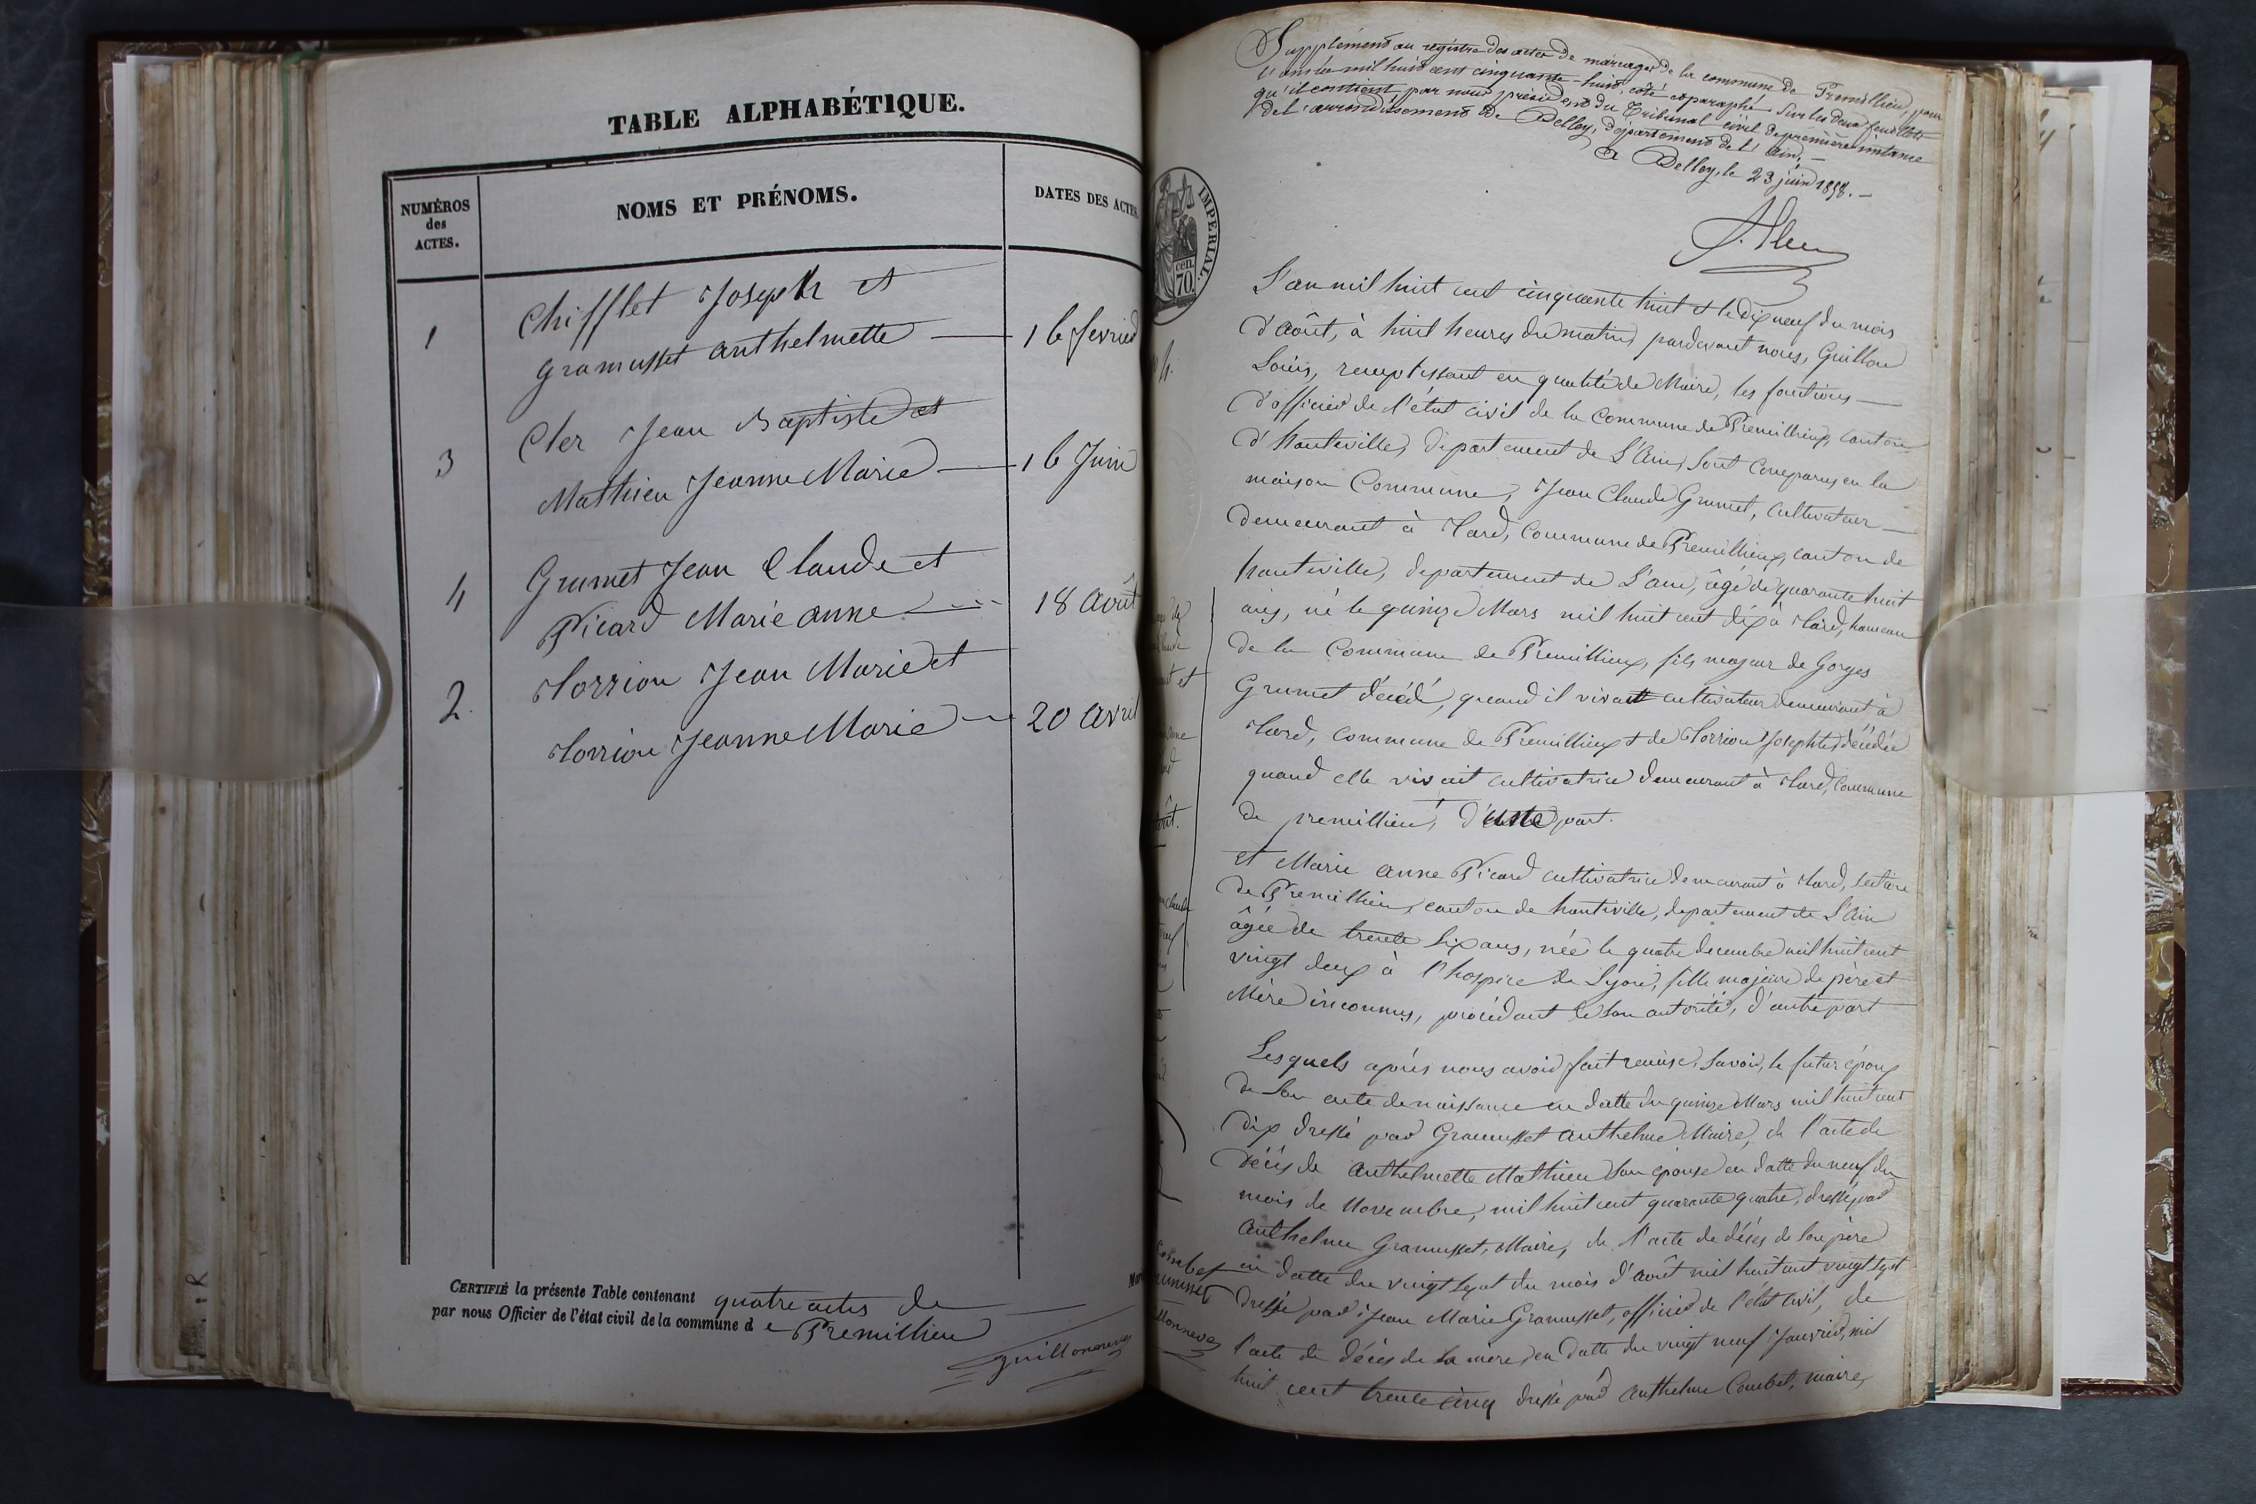 TABLE ALPHABÉTIQUE.
NUMÉROS
des
ACTES.
NOMS ET PRÉNOMS.
DATES DES ACTES
1
Chifflet Joseph et
Gramusset anthelmette
16 fevrier
3
Cler Jean Baptiste et
Mathieu Jeanne Marie
16 Juin
4
Grumet Jean Claude et
Picard Marie anne
18 août
2.
Horriou Jean Marie et
Horriou Jeanne Marie
20 avril
CERTIFIÉ la présente Table contenant quatre actes de
par nous Officier de l'état civil de la commune de Premillieu
Supplément au registre des actes de mariages de la commune de Premillieu, pour
l'année mil huit cent cinquante-huit, coté et paraphé sur les deux feuillets
qu'il contient, par nous président du Tribunal civil de première instance
de l'arrondissement de Belley, département de l'Ain.
à Belley, le 23 juin 1858.
IMPÉRIAL.
cen.
70.
L'an mil huit cent cinquante huit et le dix neuf du mois
d'août, à huit heures du matin, pardevant nous, Guillon
Louis, remplissant en qualité de Maire, les fonctions
d'officier de l'état civil de la commune de Premillieux, canton
d'hauteville, departement de L'Ain, sont comparus en la
maison Commune, Jean Claude Grumet, cultivateur
demeurant à , commune de Premillieux, canton de
hauteville, departement de L'ain, âgé de quarante huit
ans, né le quinze Mars mil huit cent dix à , hameau
de la Commune de Premillieux, fils majeur de Gorges
Grumet décédé, quand il vivait cultivateur demeurant à
, commune de Premillieux & de Horriou Josephte décédée
quand elle vivait cultivatrice demeurant à , commune
de premillieu, d'une part.
et Marie anne Picard cultivatrice demeurant à , section
de Premillieu, canton de hauteville, departement de L'Ain
âgée de trente six ans, née le quatre decembre mil huit cent
vingt deux à l'hospice de Lyon, fille majeure de père et
Mère inconnus, procédant de son autorité, d'autre part
Lesquels après nous avoir fait remise, savoir, le futur époux
de son acte de naissance en datte du quinze Mars mil huit cent
dix dressé par Gramusset Anthelme Maire, de l'acte de
décès de Anthelmette Mathieu son épouse en datte du neuf du
mois de Novembre, mil huit cent quarante quatre, dressé par
Anthelme Gramusset, Maire, de l'acte de décès de son père
en datte du vingt sept du mois d'août mil huit cent vingt sept
dressé par Jean Marie Gramusset, officier de l'état civil, de
l'acte de décès de sa mère, en datte du vingt neuf Janvier, mil
huit cent trente cinq dressé par Anthelme Combet, maire,